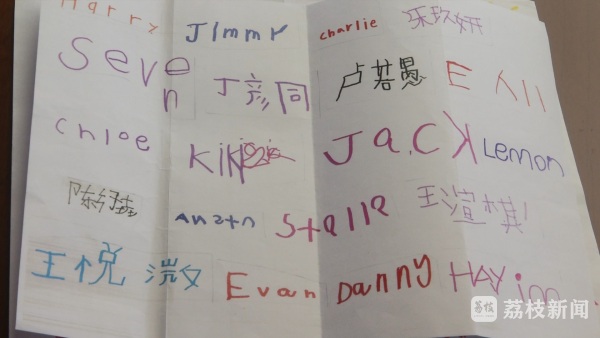 Harry Jimmy charlie 乐玖妍
Seven 丁彦同 卢若愚 E人ll
chloe Kiki JaCK Lemon
陈 Anztn Stella 王渲棋
王悦溦 Evan Danny HAYinn
荔枝新闻